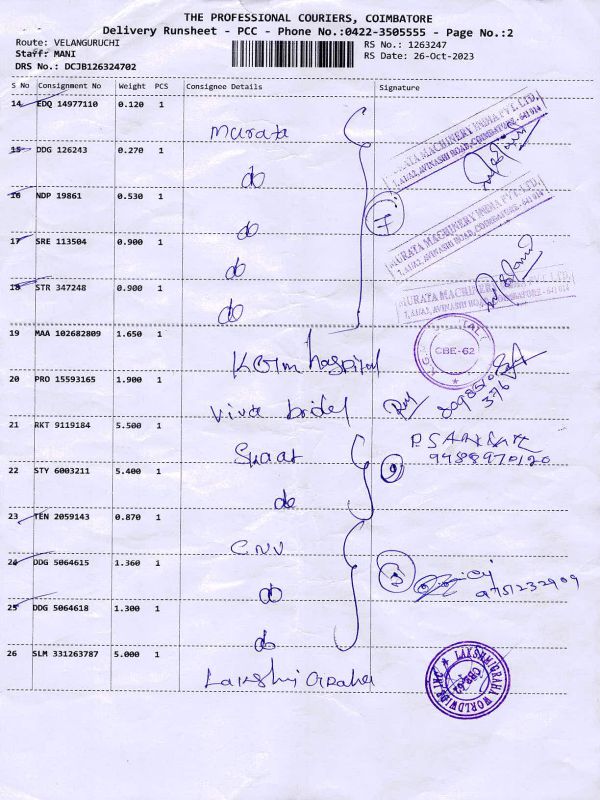 THE PROFESSIONAL COURIERS, COIMBATORE
Delivery Runsheet - PCC - Phone No.:0422-3505555 - Page No.:2
Route: VELANGURUCHI
RS No.: 1263247
Staff: MANI
RS Date: 26-Oct-2023
DRS No.: DCJB126324702
S No Consignment No Weight PCS Consignee Details Signature
14 EDQ 14977110 0.120 1
Murata
MURATA MACHINERY INDIA PVT. LTD.
AVINASHI ROAD, COIMBATORE - 641 014
15 DDG 126243 0.270 1
do
16 NDP 19861 0.530 1
do
7
MURATA MACHINERY INDIA PVT. LTD.
AVINASHI ROAD, COIMBATORE - 641 014
17 SRE 113504 0.900 1
do
18 STR 347248 0.900 1
do
MURATA MACHINERY INDIA PVT. LTD.
19 MAA 102682809 1.650 1
hospital
CBE-62
20 PRO 15593165 1.900 1
Viva bridel
376
21 RKT 9119184 5.500 1
9788970120
22 STY 6003211 5.400 1
do
23 TEN 2059143 0.870 1
CNV
24 DDG 5064615 1.360 1
do
3
9751232909
25 DDG 5064618 1.300 1
do
26 SLM 331263787 5.000 1
Lakshmi Graha
LAKSHMIGRAHA WORLDWIDE INC